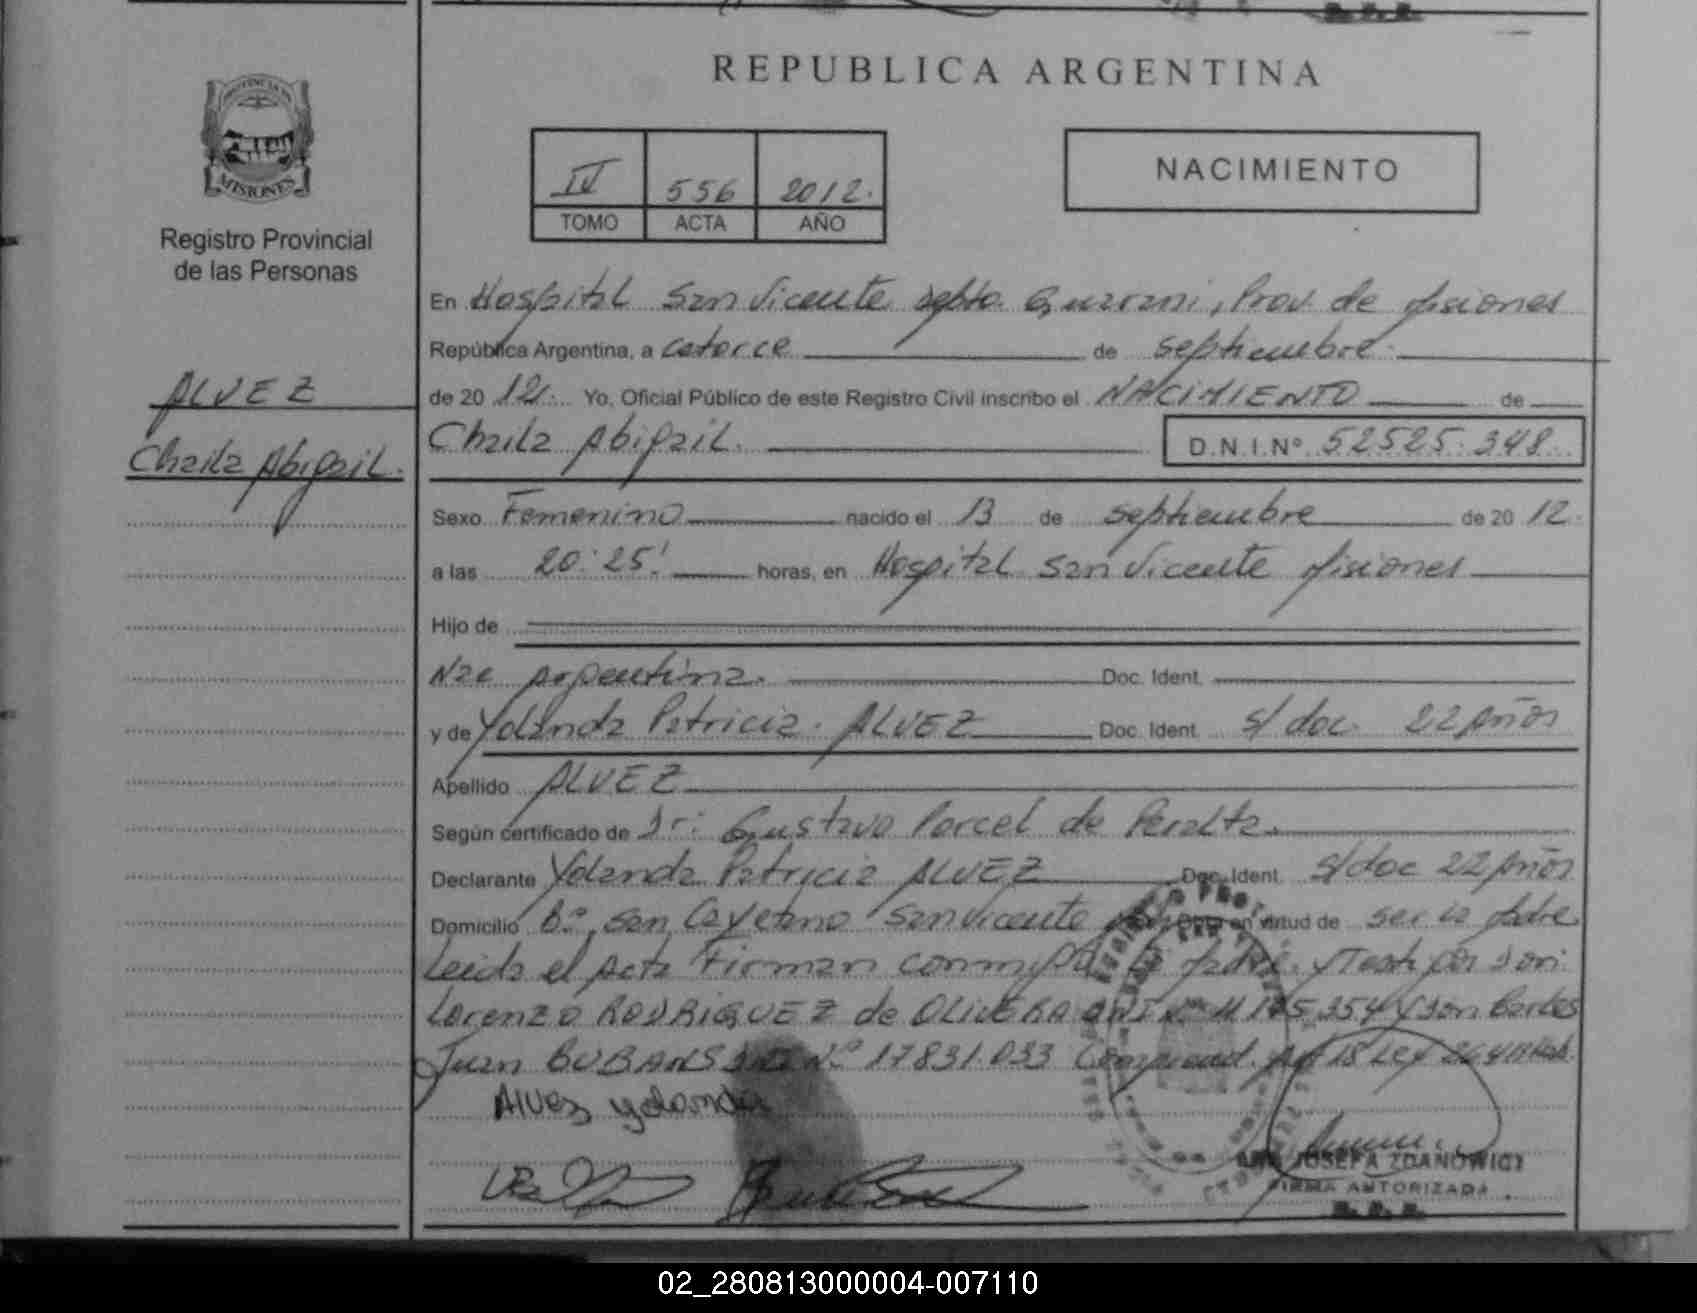 REPUBLICA ARGENTINA
PROVINCIA DE
MISIONES
Registro Provincial
de las Personas
IV 556 2012.
TOMO ACTA AÑO
NACIMIENTO
ALVEZ
Chaila Abigail.
En Hospital San Vicente Depto. Guarani, Prov. de Misiones
República Argentina, a catorce de septiembre
de 20 12. Yo, Oficial Público de este Registro Civil inscribo el NACIMIENTO de
Chaila Abigail. D.N.I.Nº 52525.348.
Sexo Femenino nacido el 13 de septiembre de 20 12.
a las 20:25' horas, en Hospital San Vicente Misiones
Hijo de
Nac Argentina. Doc. Ident.
y de Yolanda Patricia ALVEZ Doc. Ident. s/doc. 22 Años
Apellido ALVEZ
Según certificado de Dr: Gustavo Porcel de Peralta.
Declarante Yolanda Patricia ALVEZ Doc. Ident. s/doc 22 Años
Domicilio Bº San Cayetano San Vicente en virtud de ser la Madre
Leida el Acta Firman conmigo la Madre. y Test. por Don:
Lorenzo RODRIGUEZ de OLIVERA DNI Nº 11 175.354 y Don Carlos
Juan BUBANS DNI Nº 17831.033 Ley
Alvez yolanda
JOSEFA ZDANOWICZ
FIRMA AUTORIZADA
02_280813000004-007110